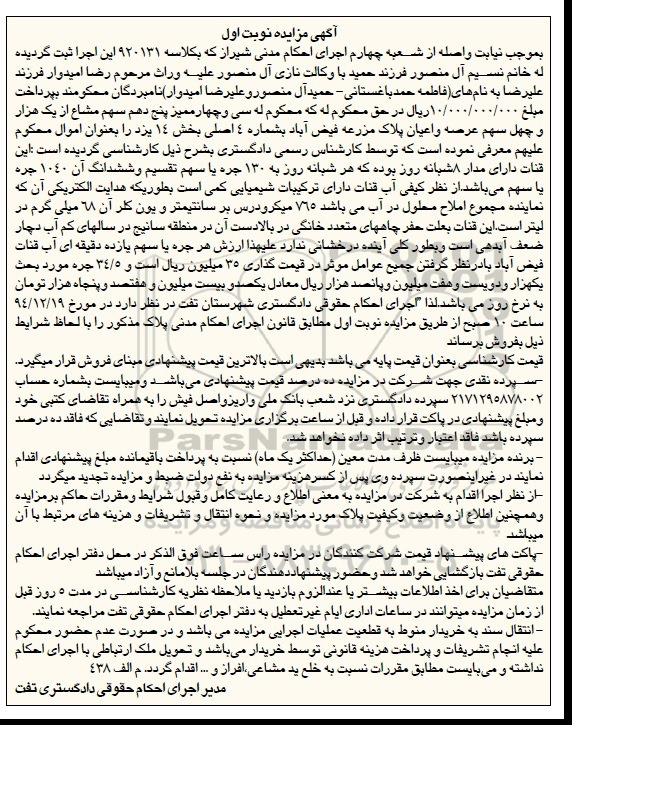 آگهی مزایده نوبت اول
بموجب نیابت واصله از شعبه چهارم اجرای احکام مدنی شیراز که بکلاسه ۹۲۰۱۳۱ این اجرا ثبت گردیده
له خانم نسیم آل منصور فرزند حمید با وکالت نازی آل منصور علیه وراث مرحوم رضا امیدوار فرزند
علیرضا به نام‌های(فاطمه حمدباغستانی- حمیدآل منصوروعلیرضا امیدوار)نامبردگان محکومند بپرداخت
مبلغ ۱۰/۰۰۰/۰۰۰/۰۰۰ریال در حق محکوم له که محکوم له سی وچهارممیز پنج دهم سهم مشاع از یک هزار
و چهل سهم عرصه واعیان پلاک مزرعه فیض آباد بشماره ۴ اصلی بخش ۱۴ یزد را بعنوان اموال محکوم
علیهم معرفی نموده است که توسط کارشناس رسمی دادگستری بشرح ذیل کارشناسی گردیده است :این
قنات دارای مدار ۸شبانه روز بوده که هر شبانه روز به ۱۳۰ جره یا سهم تقسیم وششدانگ آن ۱۰۴۰ جره
یا سهم می‌باشد.از نظر کیفی آب قنات دارای ترکیبات شیمیایی کمی است بطوریکه هدایت الکتریکی آن که
نماینده مجموع املاح محلول در آب می باشد ۷۶۵ میکرودرس بر سانتیمتر و یون کلر آن ۶۸ میلی گرم در
لیتر است.این قنات بعلت حفر چاههای متعدد خانگی در بالادست آن در منطقه سانیج در سالهای کم آب دچار
ضعف آبدهی است وبطور کلی آینده درخشانی ندارد علیهذا ارزش هر جره یا سهم یازده دقیقه ای آب قنات
فیض آباد بادرنظر گرفتن جمیع عوامل موثر در قیمت گذاری ۳۵ میلیون ریال است و ۳۴/۵ جره مورد بحث
یکهزار ودویست وهفت میلیون وپانصد هزار ریال معادل یکصدو بیست میلیون و هفتصد وپنجاه هزار تومان
به نرخ روز می باشد.لذا "اجرای احکام حقوقی دادگستری شهرستان تفت در نظر دارد در مورخ ۹۴/۱۲/۱۹
ساعت ۱۰ صبح از طریق مزایده نوبت اول مطابق قانون اجرای احکام مدنی پلاک مذکور را با لحاظ شرایط
ذیل بفروش برساند
قیمت کارشناسی بعنوان قیمت پایه می باشد بدیهی است بالاترین قیمت پیشنهادی مبنای فروش قرار میگیرد.
-سپرده نقدی جهت شرکت در مزایده ده درصد قیمت پیشنهادی می‌باشد ومیبایست بشماره حساب
۲۱۷۱۲۹۵۸۷۸۰۰۲ سپرده دادگستری نزد شعب بانک ملی واریزواصل فیش را به همراه تقاضای کتبی خود
ومبلغ پیشنهادی در پاکت قرار داده و قبل از ساعت برگزاری مزایده تحویل نمایند وتقاضایی که فاقد ده درصد
سپرده باشد فاقد اعتبار وترتیب اثر داده نخواهد شد.
- برنده مزایده میبایست ظرف مدت معین (حداکثر یک ماه) نسبت به پرداخت باقیمانده مبلغ پیشنهادی اقدام
نمایند در غیراینصورت سپرده وی پس از کسرهزینه مزایده به نفع دولت ضبط و مزایده تجدید میگردد
-از نظر اجرا اقدام به شرکت در مزایده به معنی اطلاع و رعایت کامل وقبول شرایط ومقررات حاکم برمزایده
وهمچنین اطلاع از وضعیت وکیفیت پلاک مورد مزایده و نحوه انتقال و تشریفات و هزینه های مرتبط با آن
میباشد.
-پاکت های پیشنهاد قیمت شرکت کنندگان در مزایده راس ساعت فوق الذکر در محل دفتر اجرای احکام
حقوقی تفت بازگشایی خواهد شد وحضور پیشنهاددهندگان در جلسه بلامانع وآزاد میباشد
متقاضیان برای اخذ اطلاعات بیشتر یا عندالزوم بازدید یا ملاحظه نظریه کارشناسی در مدت ۵ روز قبل
از زمان مزایده میتوانند در ساعات اداری ایام غیرتعطیل به دفتر اجرای احکام حقوقی تفت مراجعه نمایند.
- انتقال سند به خریدار منوط به قطعیت عملیات اجرایی مزایده می باشد و در صورت عدم حضور محکوم
علیه انجام تشریفات و پرداخت هزینه قانونی توسط خریدار می‌باشد و تحویل ملک ارتباطی با اجرای احکام
نداشته و می‌بایست مطابق مقررات نسبت به خلع ید مشاعی،افراز و ... اقدام گردد. م الف ۴۳۸
مدیر اجرای احکام حقوقی دادگستری تفت
ParsNamadData
پایگاه اطلاع رسانی مناقصه و مزایده